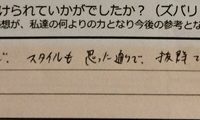 けられていかがでしたか？（ズバリ
想が、私達の何よりの力となり今後の参考とな
スタイルも思った通りで、抜群で